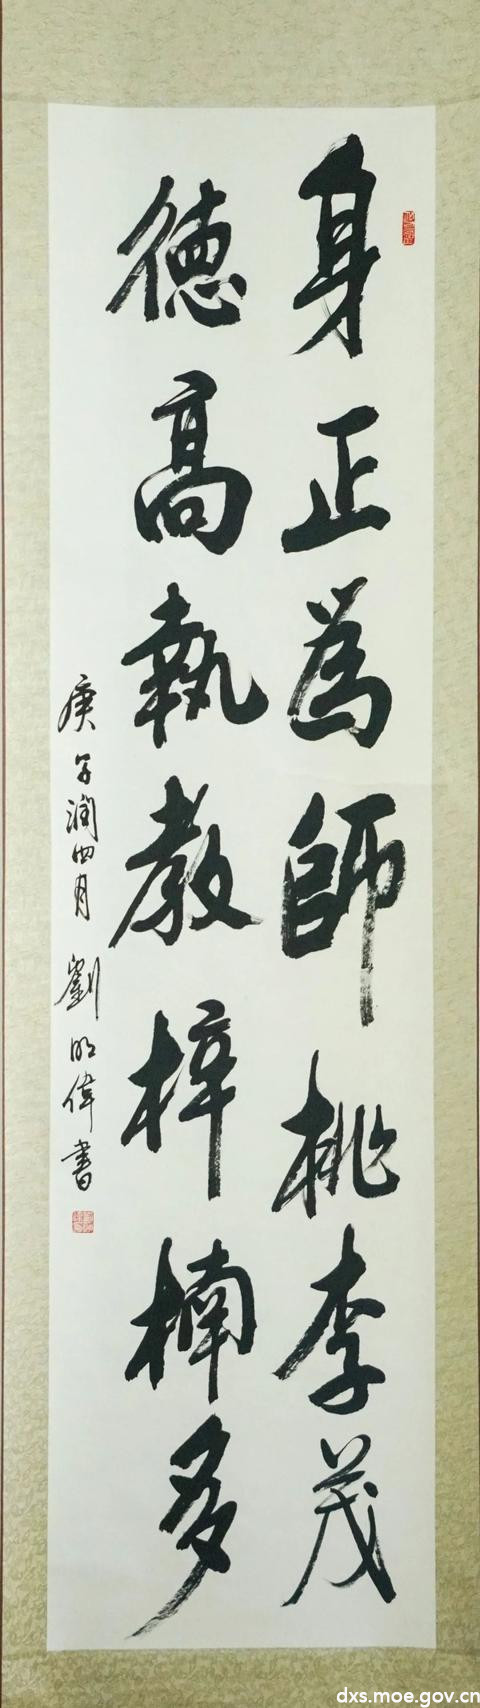 身正為師桃李茂
德高執教梓楠多
庚子潤四月劉明偉書
dxs.moe.gov.cn